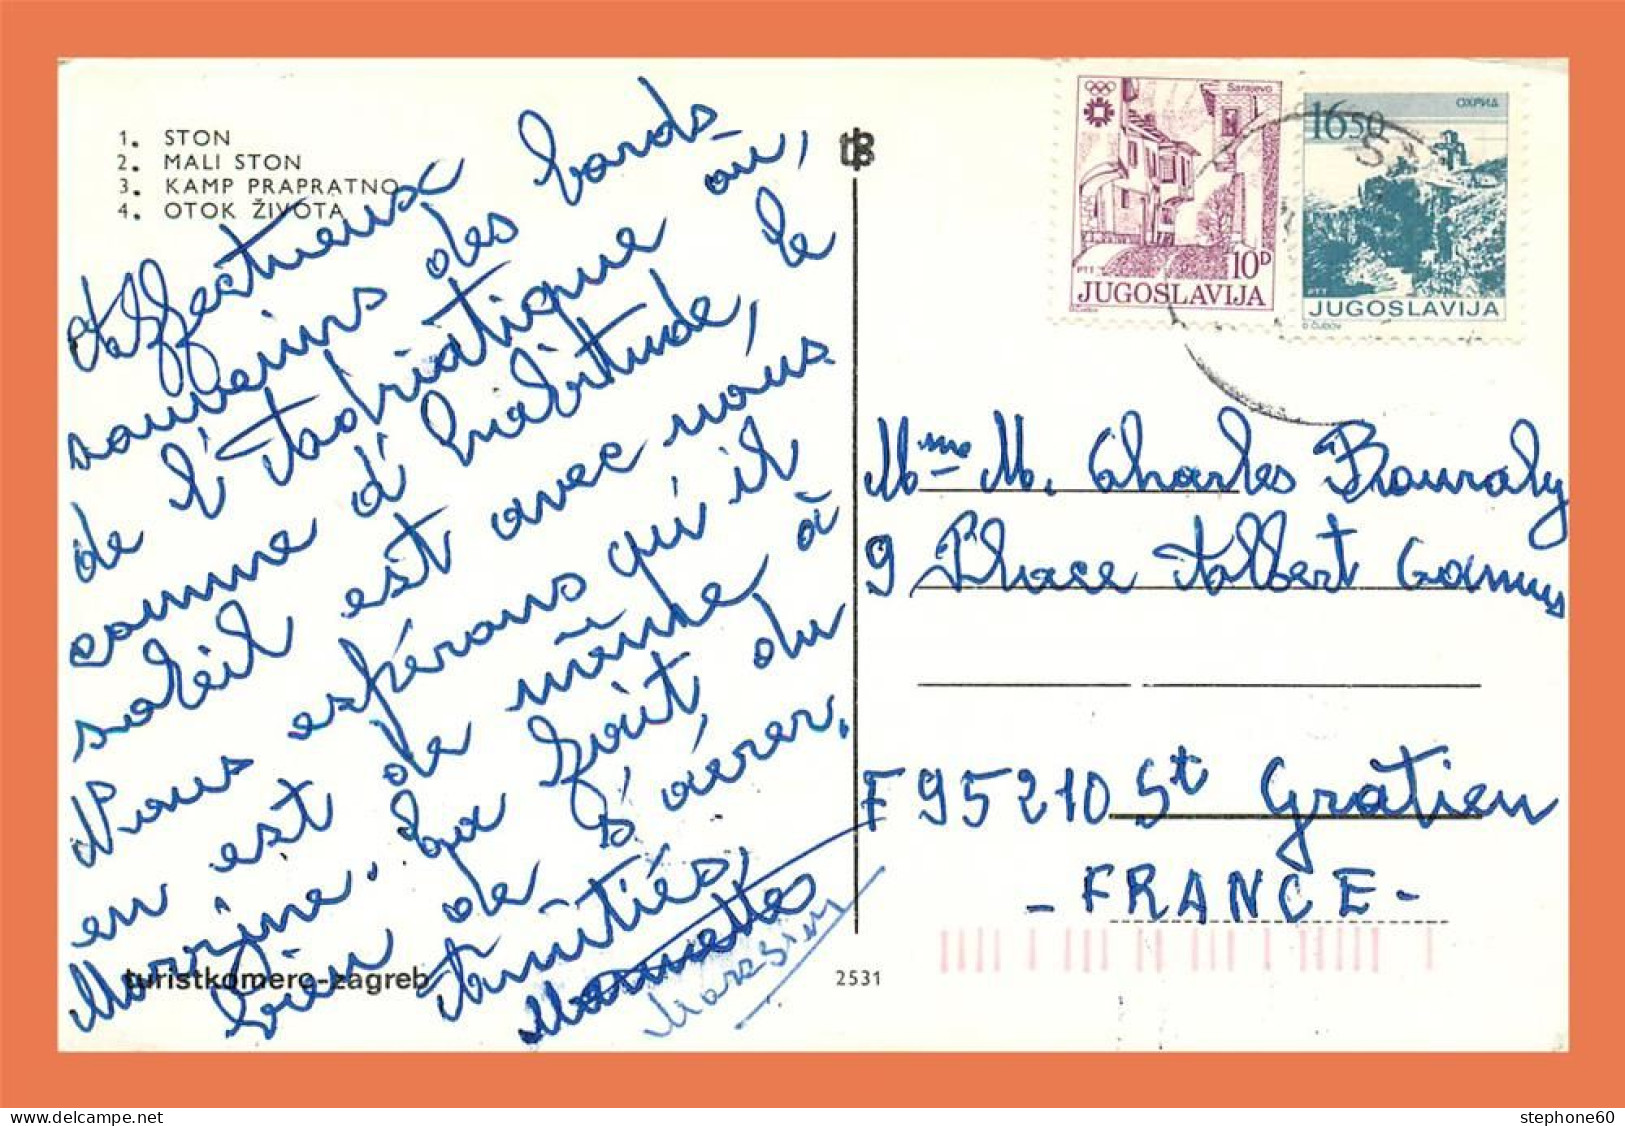 1. STON
2. MALI STON
3. KAMP PRAPRATNO
4. OTOK ŽIVOTA
Affectueux
souvenirs des bords
de l'Adriatique où,
comme d'habitude, le
soleil est avec nous.
Nous espérons qu'il
en est de même à
La goût du
bien de s'aérer.
Amitiés,
turistkomerc-zagreb
2531
Sarajevo
10D
PTT
JUGOSLAVIJA
D.ČUDOV
1650
ОХРИД
PTT
JUGOSLAVIJA
D ČUDOV
Mme M. Charles Bouraly
9 Place Albert Camus
F 95210 St Gratien
- FRANCE -
stephone60
www.delcampe.net